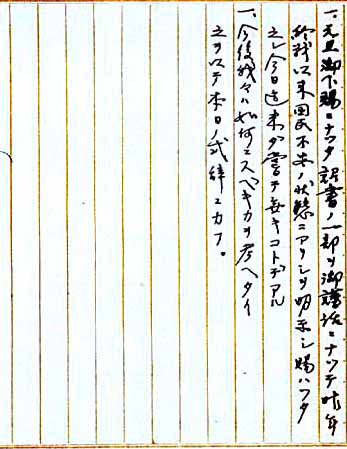 一、元旦御下賜ニナツタ詔書ノ一部ヲ御講話ニナツテ昨年
終戦以来国民不安ノ状態ニアリシヲ明示シ賜ハツタ
之レ今日迄未ダ嘗テ無キコトデアル
一、今後我々ハ如何ニスベキカヲ考ヘタイ
之ヲ以テ本日ノ式辞ニカフ。